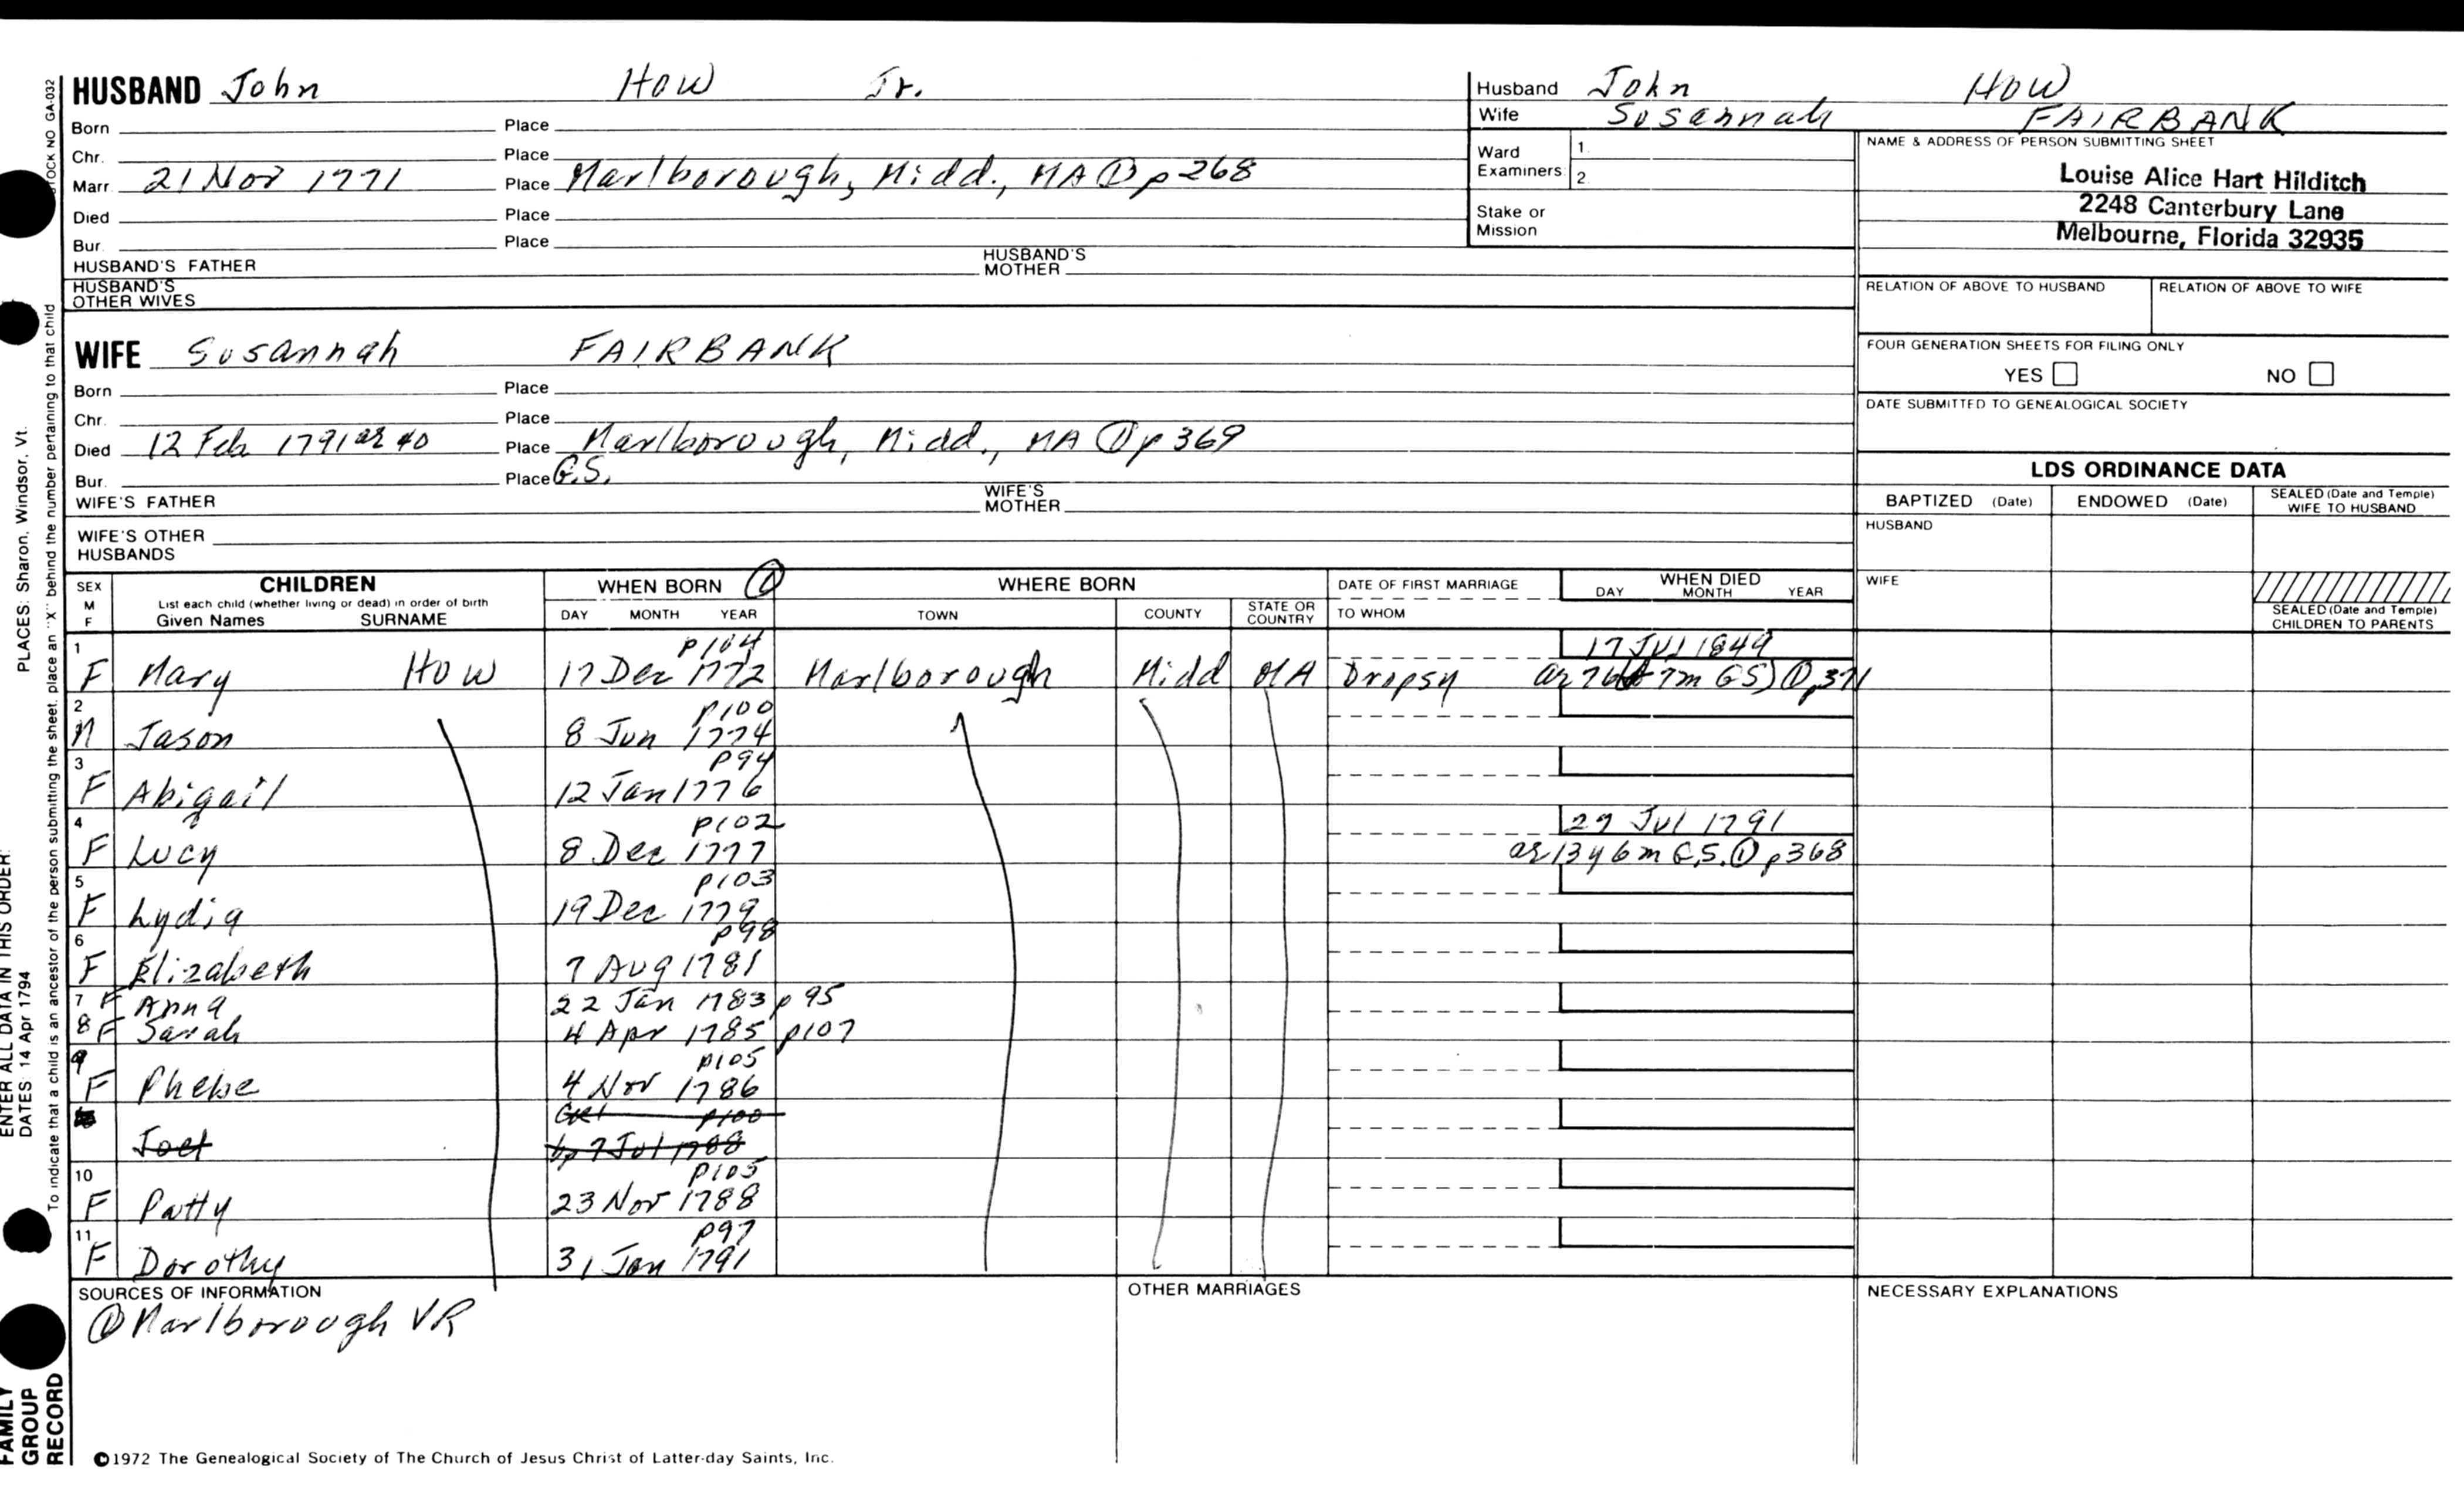 HUSBAND John How Jr.
Born Place
Chr. Place
Marr. 21 Nov 1771 Place Marlborough, Midd., MA ① p 268
Died Place
Bur. Place
HUSBAND'S FATHER HUSBAND'S MOTHER
HUSBAND'S OTHER WIVES
WIFE Susannah FAIRBANK
Born Place
Chr. Place
Died 12 Feb 1791 ae 40 Place Marlborough, Midd., MA ① p 369
Bur. Place G.S.
WIFE'S FATHER WIFE'S MOTHER
WIFE'S OTHER HUSBANDS
Husband John How
Wife Susannah FAIRBANK
Ward Examiners 1. 2.
Stake or Mission
NAME & ADDRESS OF PERSON SUBMITTING SHEET
Louise Alice Hart Hilditch
2248 Canterbury Lane
Melbourne, Florida 32935
RELATION OF ABOVE TO HUSBAND RELATION OF ABOVE TO WIFE
FOUR GENERATION SHEETS FOR FILING ONLY
YES NO
DATE SUBMITTED TO GENEALOGICAL SOCIETY
LDS ORDINANCE DATA
BAPTIZED (Date) ENDOWED (Date) SEALED (Date and Temple) WIFE TO HUSBAND
HUSBAND
WIFE
SEALED (Date and Temple) CHILDREN TO PARENTS
SEX M F CHILDREN WHEN BORN ① WHERE BORN DATE OF FIRST MARRIAGE WHEN DIED
List each child (whether living or dead) in order of birth
Given Names SURNAME DAY MONTH YEAR TOWN COUNTY STATE OR COUNTRY TO WHOM DAY MONTH YEAR
1 p104 17 Jul 1849
F Mary How 17 Dec 1772 Marlborough Midd MA Dropsy ae 76 7m GS) ① p371
2 p100
M Jason 8 Jun 1774
3 p94
F Abigail 12 Jan 1776
4 p102 29 Jul 1791
F Lucy 8 Dec 1777 ae 13y 6m G.S. ① p368
5 p103
F Lydia 19 Dec 1779
6 p98
F Elizabeth 7 Aug 1781
7 F Anna 22 Jan 1783 p 95
8 F Sarah 4 Apr 1785 p107
9 p105
F Phebe 4 Nov 1786
p100
Joel bp 7 Jul 1788
10 p105
F Patty 23 Nov 1788
11 p97
F Dorothy 31 Jan 1791
SOURCES OF INFORMATION OTHER MARRIAGES NECESSARY EXPLANATIONS
① Marlborough VR
©1972 The Genealogical Society of The Church of Jesus Christ of Latter-day Saints, Inc.
STOCK NO GA-032
To indicate that a child is an ancestor of the person submitting the sheet, place an "X" behind the number pertaining to that child
PLACES: Sharon, Windsor, Vt.
ENTER ALL DATA IN THIS ORDER:
DATES: 14 Apr 1794
FAMILY GROUP RECORD